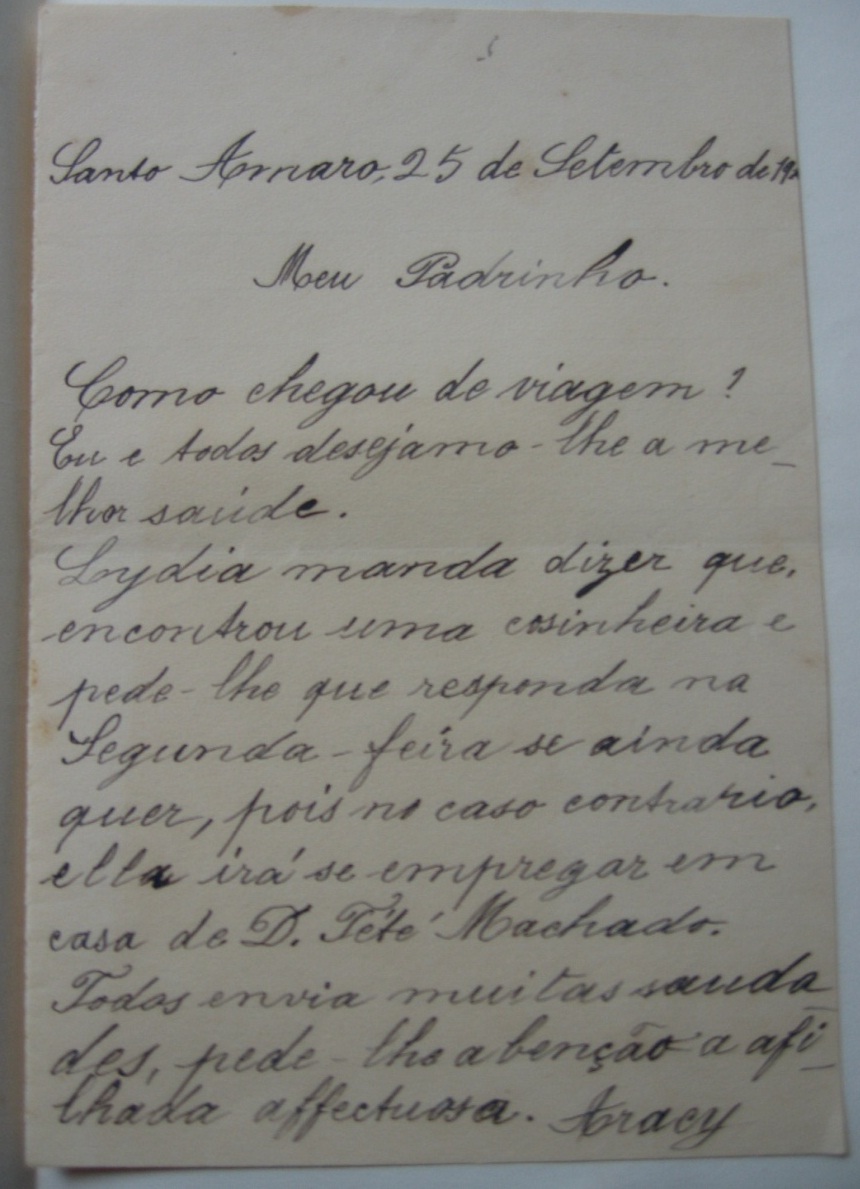 Santo Amaro, 25 de Setembro de 19
Meu Padrinho.
Como chegou de viagem?
Eu e todos desejamo-lhe a me-
lhor saúde.
Lydia manda dizer que,
encontrou uma cosinheira e
pede-lhe que responda na
Segunda-feira se ainda
quer, pois no caso contrario,
ella irá se empregar em
casa de D. Tété Machado.
Todos envia muitas sauda-
des, pede-lhe abenção a afi-
lhada affectuosa. Aracy